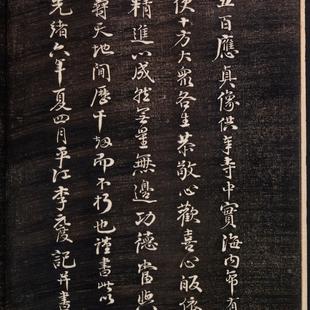 五百應真像供奉寺中實海内希有
使十方大衆各生恭敬心歡喜心皈依
精進以成就無量無邊功德當與
壽天地間歷千劫而不朽也謹書此以
光緒六年夏四月平江李元度記并書